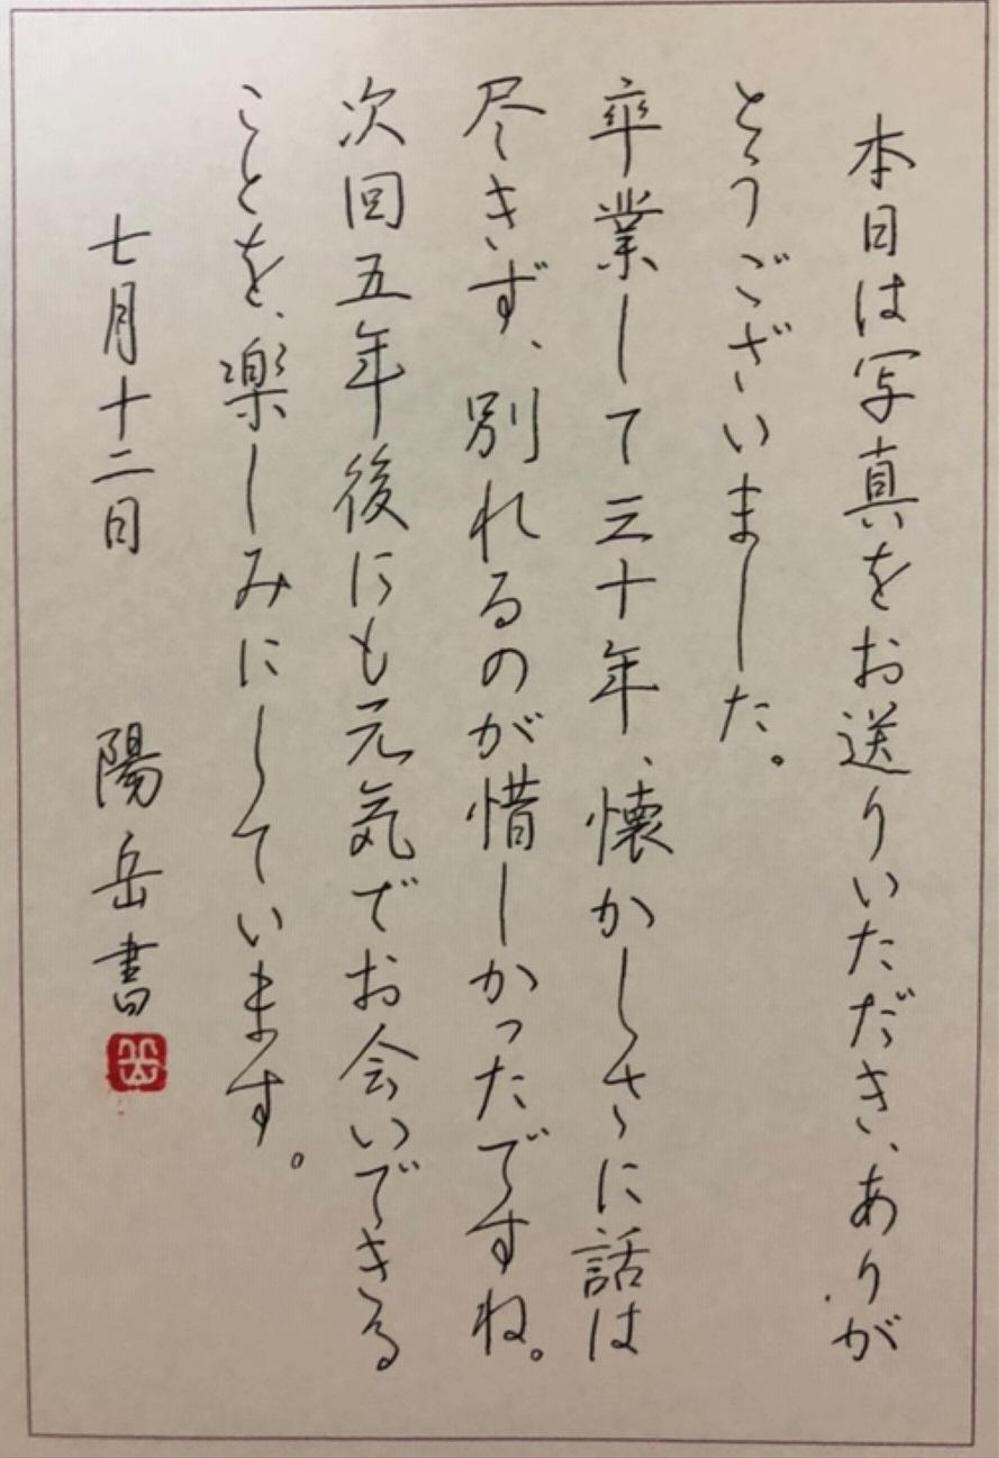 本日は写真をお送りいただき、ありが
とうございました。
卒業して三十年、懐かしさに話は
尽きず、別れるのが惜しかったですね。
次回五年後にも元気でお会いできる
ことを、楽しみにしています。
七月十二日　陽岳書